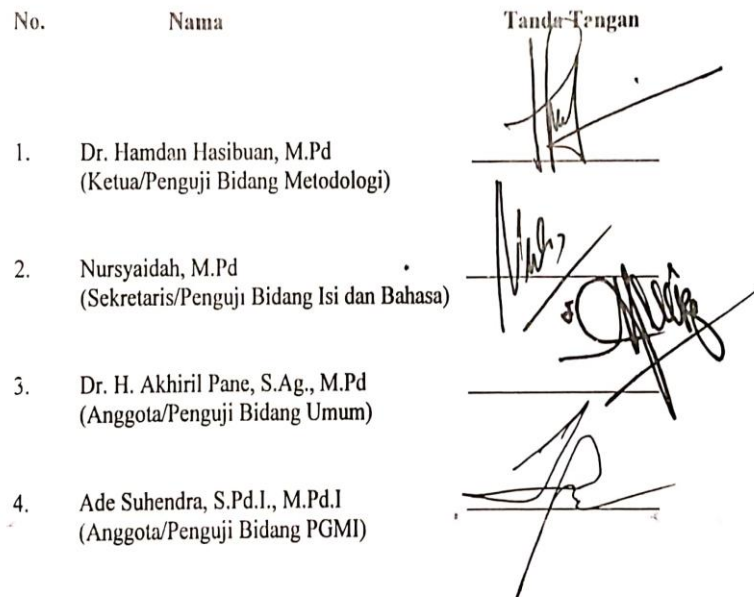 No. Nama Tanda Tangan
1. Dr. Hamdan Hasibuan, M.Pd
(Ketua/Penguji Bidang Metodologi)
2. Nursyaidah, M.Pd
(Sekretaris/Penguji Bidang Isi dan Bahasa)
3. Dr. H. Akhiril Pane, S.Ag., M.Pd
(Anggota/Penguji Bidang Umum)
4. Ade Suhendra, S.Pd.I., M.Pd.I
(Anggota/Penguji Bidang PGMI)